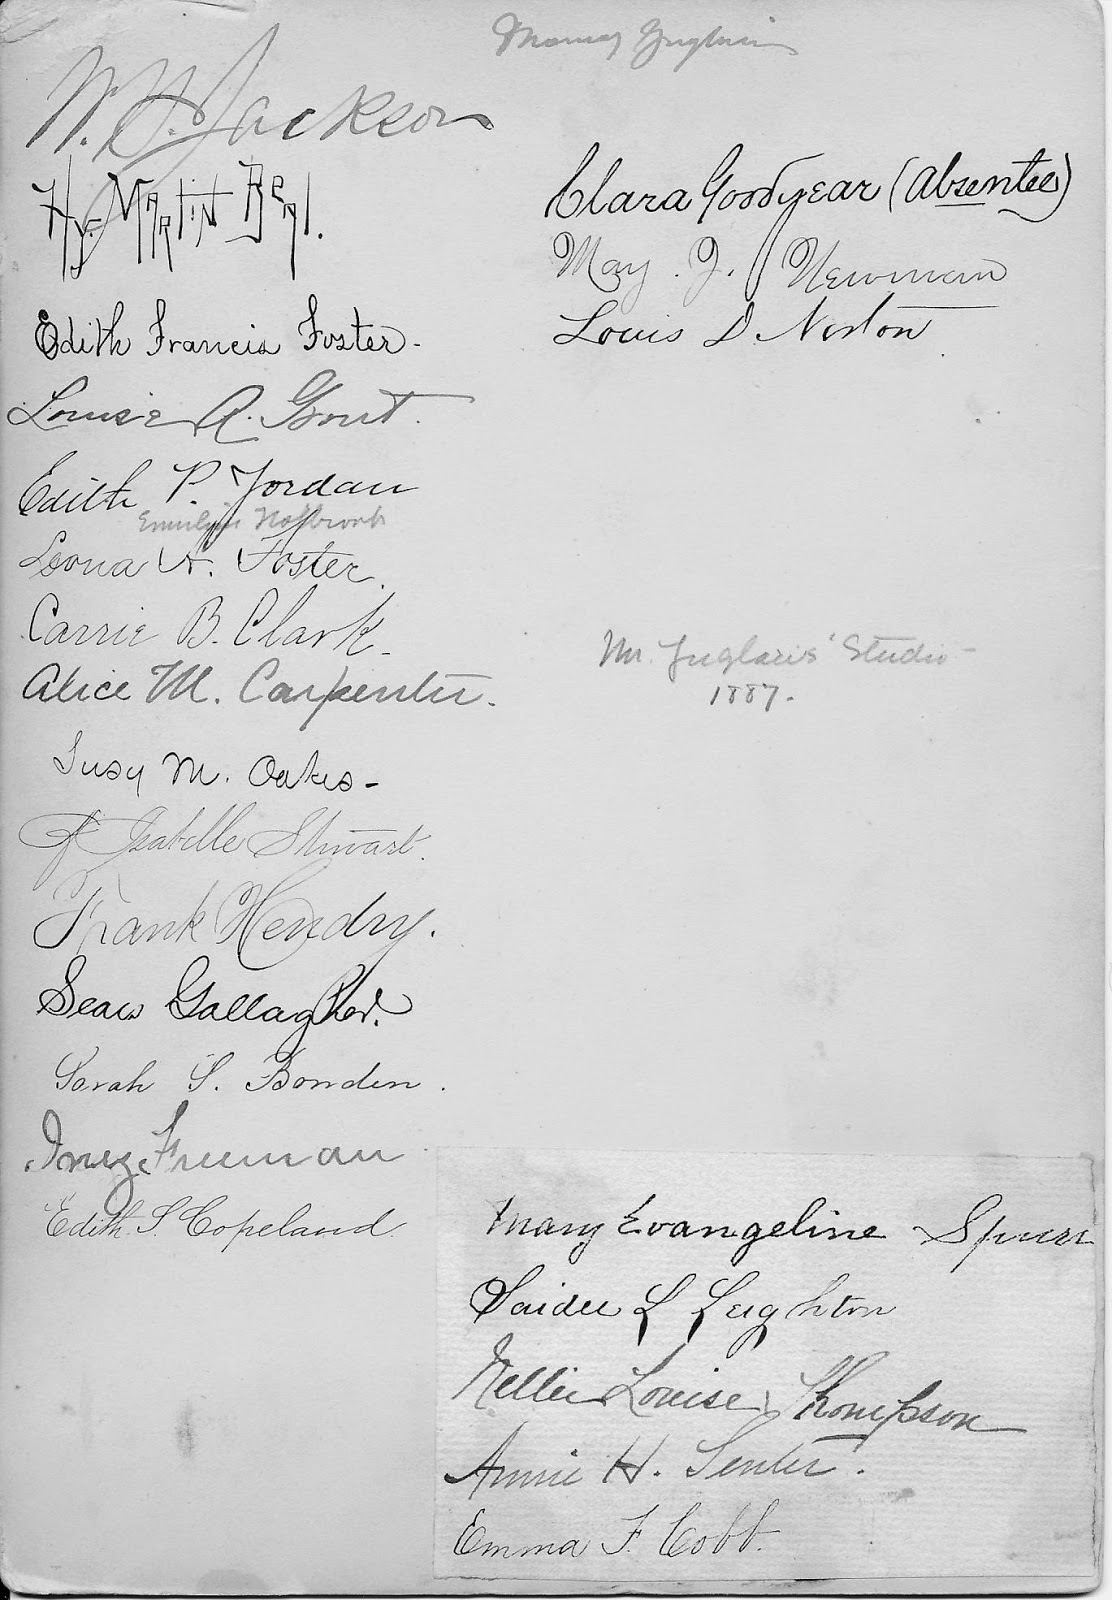 W. H. Jackson
Hy. Martin Beal.
Edith Francis Foster.
Louise A. Grout.
Edith P. Jordan
Holbrook
Leona A. Foster.
Carrie B. Clark.
Alice M. Carpenter.
Susy M. Oakes -
Isabelle Stewart.
Frank Hendry.
Sears Gallagher.
Sarah S. Bowden.
Inez Freeman
Edith S. Copeland
Clara Goodyear (Absentee)
May. J. Newman
Louis D Norton
Mr. Juglaris' Studio -
1887.
Mary Evangeline Spurr
Saidee L Leighton
Nellie Louise Thompson
Annie H. Senter.
Emma F. Cobb.